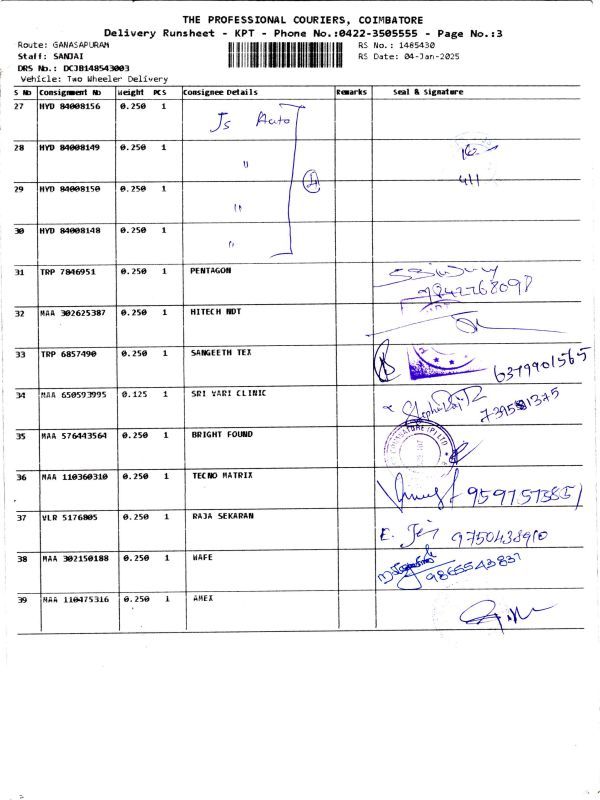 THE PROFESSIONAL COURIERS, COIMBATORE
Delivery Runsheet - KPT - Phone No.:0422-3505555 - Page No.:3
Route: GANASAPURAM
Staff: SANJAI
DRS No.: DCJB148543003
Vehicle: Two Wheeler Delivery
RS No.: 1485430
RS Date: 04-Jan-2025
S No Consignment No Weight PCS Consignee Details Remarks Seal & Signature
27 HYD 84008156 0.250 1 Js Auto
28 HYD 84008149 0.250 1 "
29 HYD 84008150 0.250 1 " 4/1
30 HYD 84008148 0.250 1 "
31 TRP 7846951 0.250 1 PENTAGON
32 MAA 302625387 0.250 1 HITECH NDT
33 TRP 6857490 0.250 1 SANGEETH TEX 6379901565
34 MAA 650593995 0.125 1 SRI VARI CLINIC
35 MAA 576443564 0.250 1 BRIGHT FOUND
36 MAA 110360310 0.250 1 TECNO MATRIX
37 VLR 5176805 0.250 1 RAJA SEKARAN 9750438910
38 MAA 302150188 0.250 1 WAFE 9865543837
39 MAA 110475316 0.250 1 AMEX